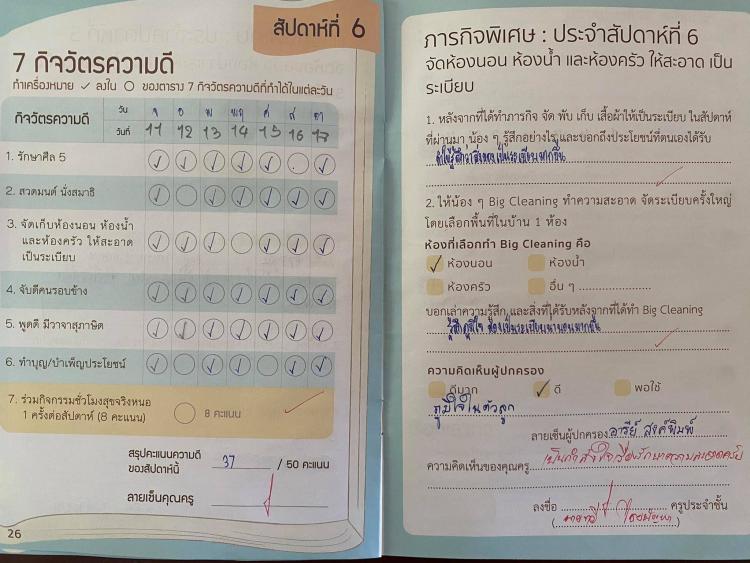 สัปดาห์ที่ 6
7 กิจวัตรความดี
ทำเครื่องหมาย ✓ ลงใน ○ ของตาราง 7 กิจวัตรความดีที่ทำได้ในแต่ละวัน
กิจวัตรความดี วัน จ อ พ พฤ ศ ส อา
วันที่ 11 12 13 14 15 16 17
1. รักษาศีล 5
2. สวดมนต์ นั่งสมาธิ
3. จัดเก็บห้องนอน ห้องน้ำ
และห้องครัว ให้สะอาด
เป็นระเบียบ
4. จับดีคนรอบข้าง
5. พูดดี มีวาจาสุภาษิต
6. ทำบุญ/บำเพ็ญประโยชน์
7. ร่วมกิจกรรมชั่วโมงสุขจริงหนอ
1 ครั้งต่อสัปดาห์ (8 คะแนน) 8 คะแนน
สรุปคะแนนความดี
ของสัปดาห์นี้ 37 / 50 คะแนน
ลายเซ็นคุณครู
26
ภารกิจพิเศษ : ประจำสัปดาห์ที่ 6
จัดห้องนอน ห้องน้ำ และห้องครัว ให้สะอาด เป็น
ระเบียบ
1. หลังจากที่ได้ทำภารกิจ จัด พับ เก็บ เสื้อผ้าให้เป็นระเบียบ ในสัปดาห์
ที่ผ่านมา น้อง ๆ รู้สึกอย่างไร และบอกถึงประโยชน์ที่ตนเองได้รับ
ทำให้รู้สึกว่าห้องเป็นระเบียบมากขึ้น
2. ให้น้อง ๆ Big Cleaning ทำความสะอาด จัดระเบียบครั้งใหญ่
โดยเลือกพื้นที่ในบ้าน 1 ห้อง
ห้องที่เลือกทำ Big Cleaning คือ
✓ ห้องนอน ห้องน้ำ
ห้องครัว อื่น ๆ ....................
บอกเล่าความรู้สึก และสิ่งที่ได้รับหลังจากที่ได้ทำ Big Cleaning
รู้สึกภูมิใจ ห้องเป็นระเบียบน่านอนมากขึ้น
ความคิดเห็นผู้ปกครอง
ดีมาก ✓ ดี พอใช้
ภูมิใจในตัวลูก
ลายเซ็นผู้ปกครอง อารีย์
ความคิดเห็นของคุณครู เป็นกำลังใจ
ลงชื่อ ครูประจำชั้น